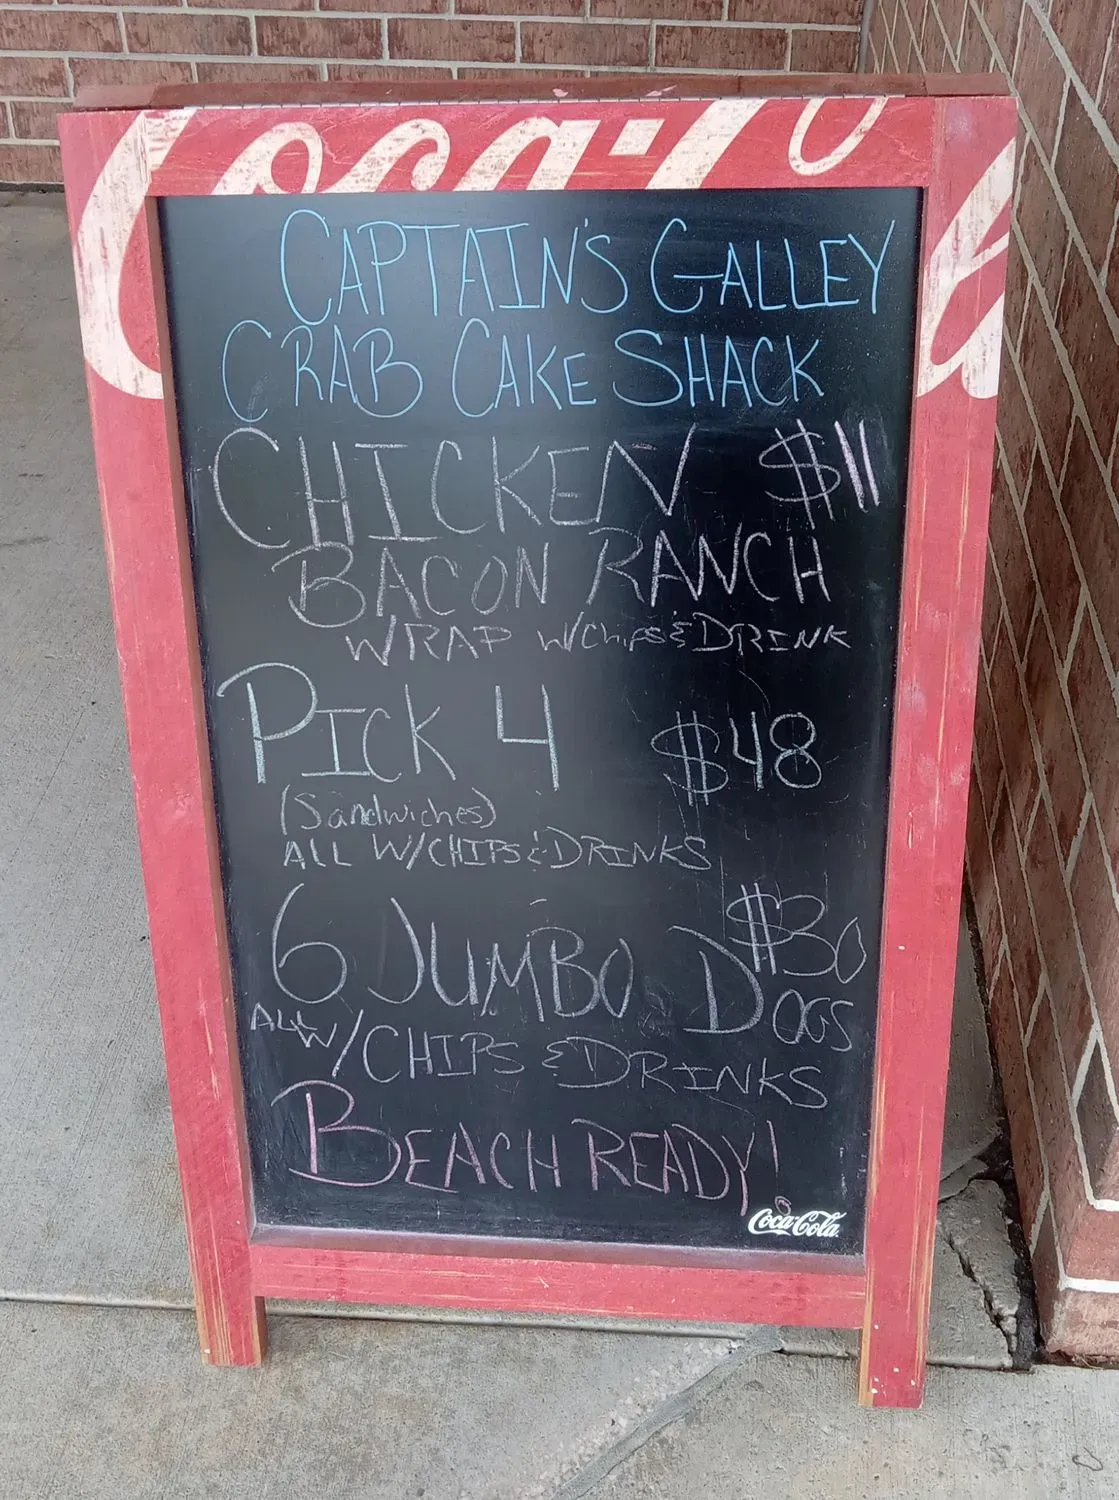 Coca-Cola
CAPTAIN'S GALLEY
CRAB CAKE SHACK
CHICKEN $11
BACON RANCH
WRAP W/CHIPS & DRINK
PICK 4 $48
(Sandwiches)
ALL W/CHIPS & DRINKS
6 JUMBO DOGS $30
ALL W/CHIPS & DRINKS
BEACH READY!
Coca-Cola